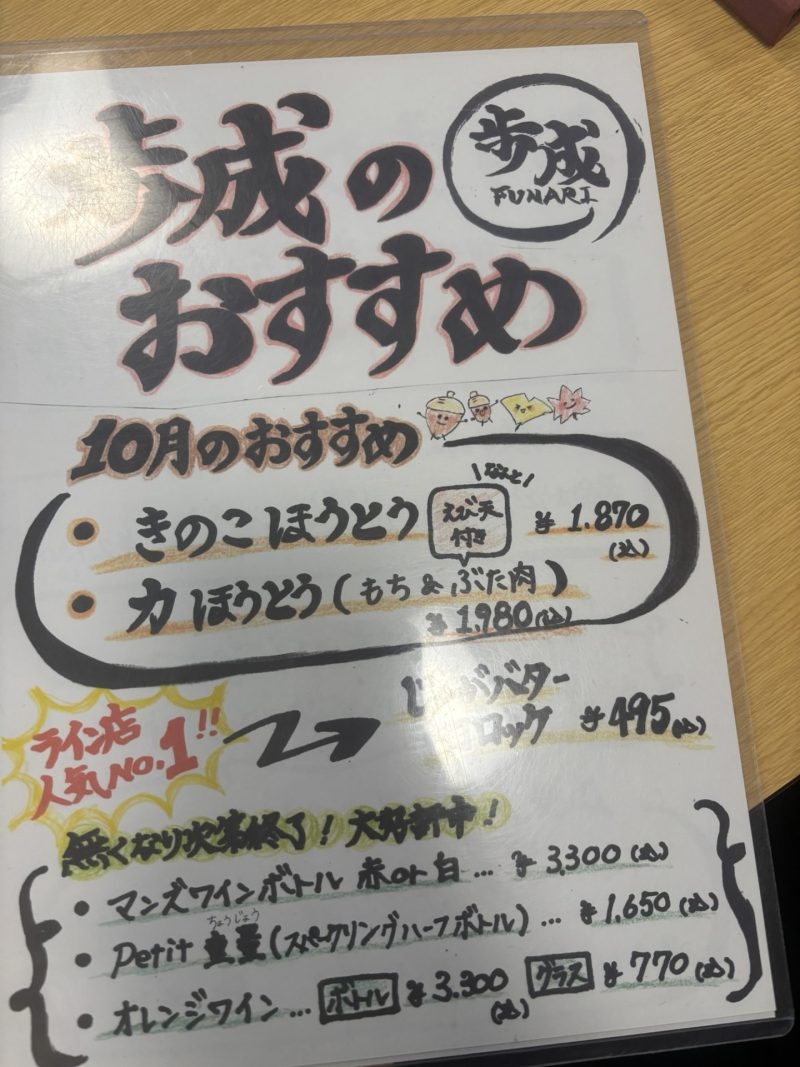 歩成の
おすすめ
歩成
FUNARI
10月のおすすめ
・きのこほうとう
\なんと/
えび天
付き
¥1.870
(込)
・力ほうとう(もち&ぶた肉)
¥1.980(込)
ライン店
人気NO.1!!
バター
ロッケ ¥495(込)
無くなり次第終了!大好評中!
・マンズワインボトル 赤or白… ¥3,300(込)
ちょうじょう
・Petit 重畳(スパークリングハーフボトル)… ¥1,650(込)
・オレンジワイン… ボトル ¥3.300 グラス ¥770(込)
(込)